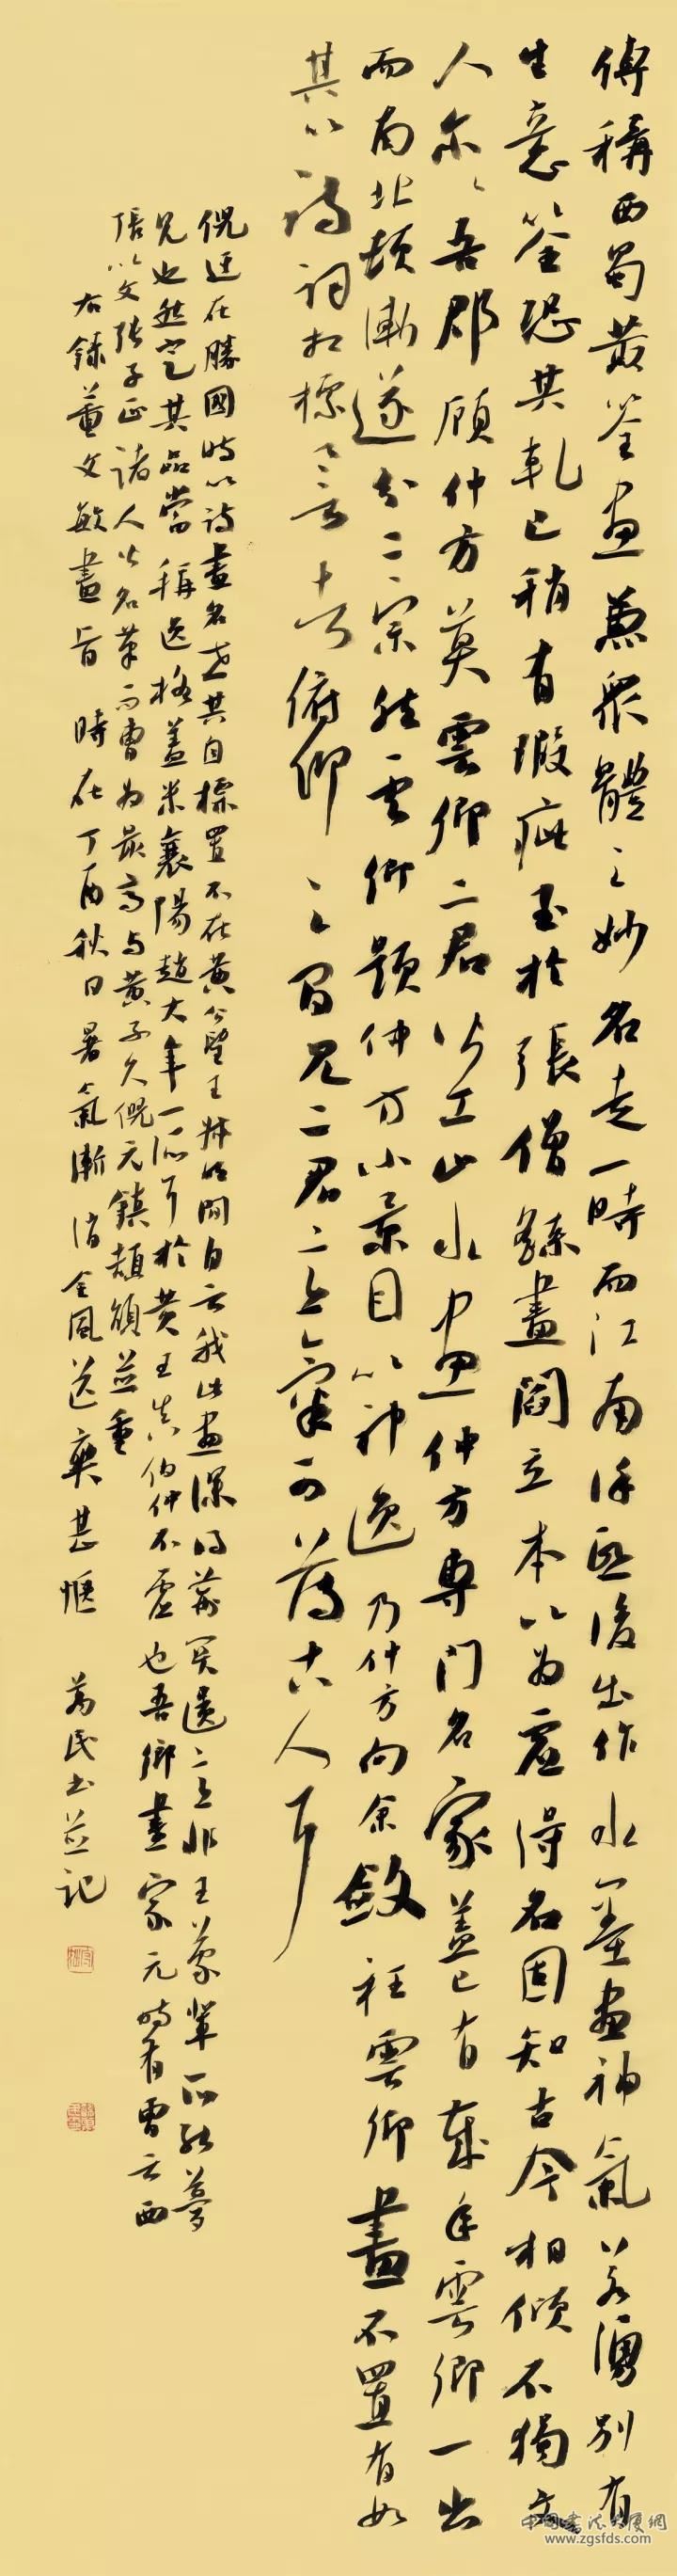 傳稱西蜀黃筌畫兼眾體之妙名走一時而江南徐熙後出作水墨畫神氣若湧別有
生意筌恐其軋已稍有瑕疵至於張僧繇畫閻立本以為虛得名固知古今相傾不獨文
人爾爾吾郡顧仲方莫雲卿二君皆工山水畫仲方專門名家蓋已有歲年雲卿一出
而南北頓漸遂分二宗然雲卿題仲方小景目以神逸乃仲方向余斂衽雲卿畫不置有如
其以詩詞相標譽者俯仰之間見二君二意氣可薄古人耳
倪迂在勝國時以詩畫名世其自標置不在黃公望王叔明間自云我此畫深得荊關遺意非王蒙輩所能夢
見也然定其品當稱逸格蓋米襄陽趙大年一派耳於黃王真伯仲不虛也吾鄉畫家元時有曹云西
張以文張子正諸人皆名筆而曹為最高與黃子久倪元鎮頡頏並重
右錄董文敏畫旨 時在丁酉秋日暑氣漸消金風送爽甚愜 為民書並記
中国书法发展網
www.zgsfds.com